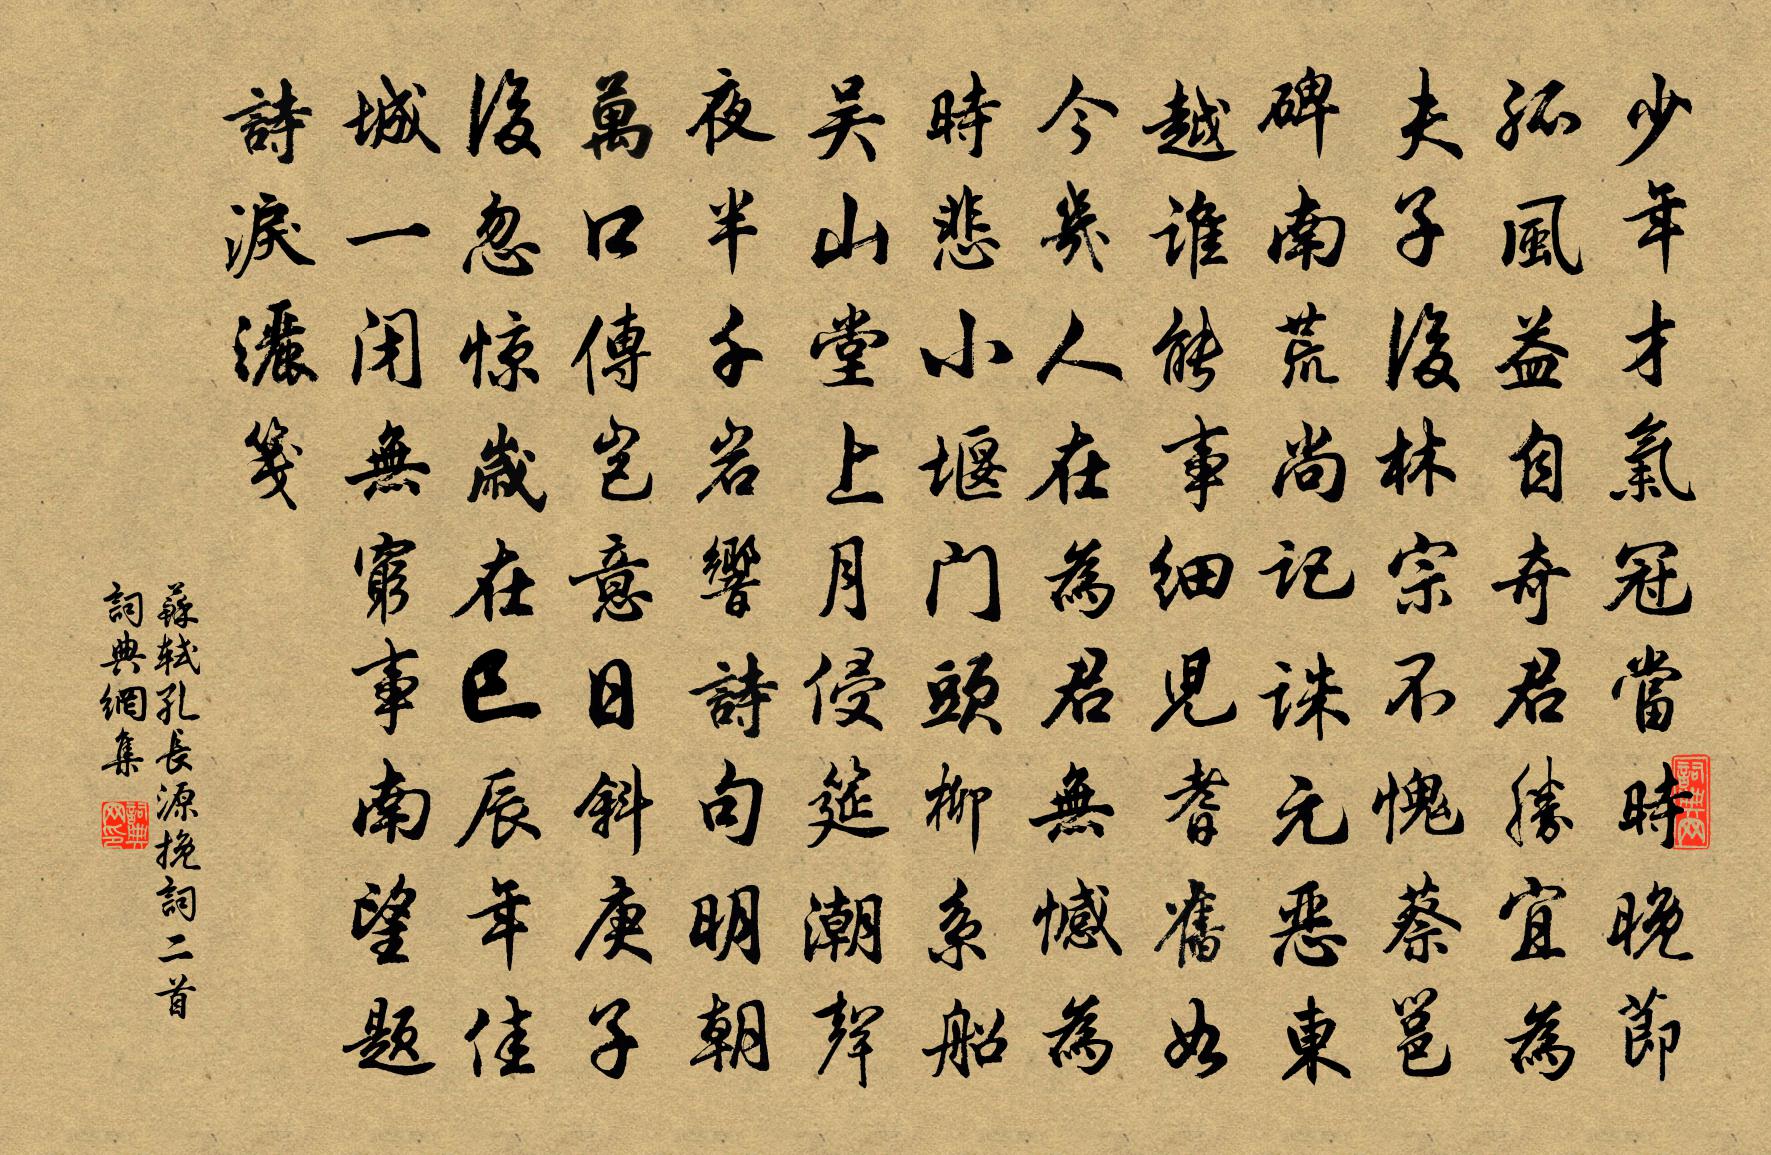 少年才氣冠當時晚節
孤風益自奇君勝宜為
夫子後林宗不愧蔡邕
碑南荒尚记誅元惡東
越谁能事细兒耆舊如
今幾人在為君無憾為
時悲小堰门頭柳系船
吴山堂上月侵筵潮聲
夜半千岩響詩句明朝
萬口傳豈意日斜庚子
後忽惊歲在巳辰年佳
城一闭無窮事南望题
詩淚灑箋
蘇轼孔長源挽詞二首
詞典網集
詞典网
詞典网印